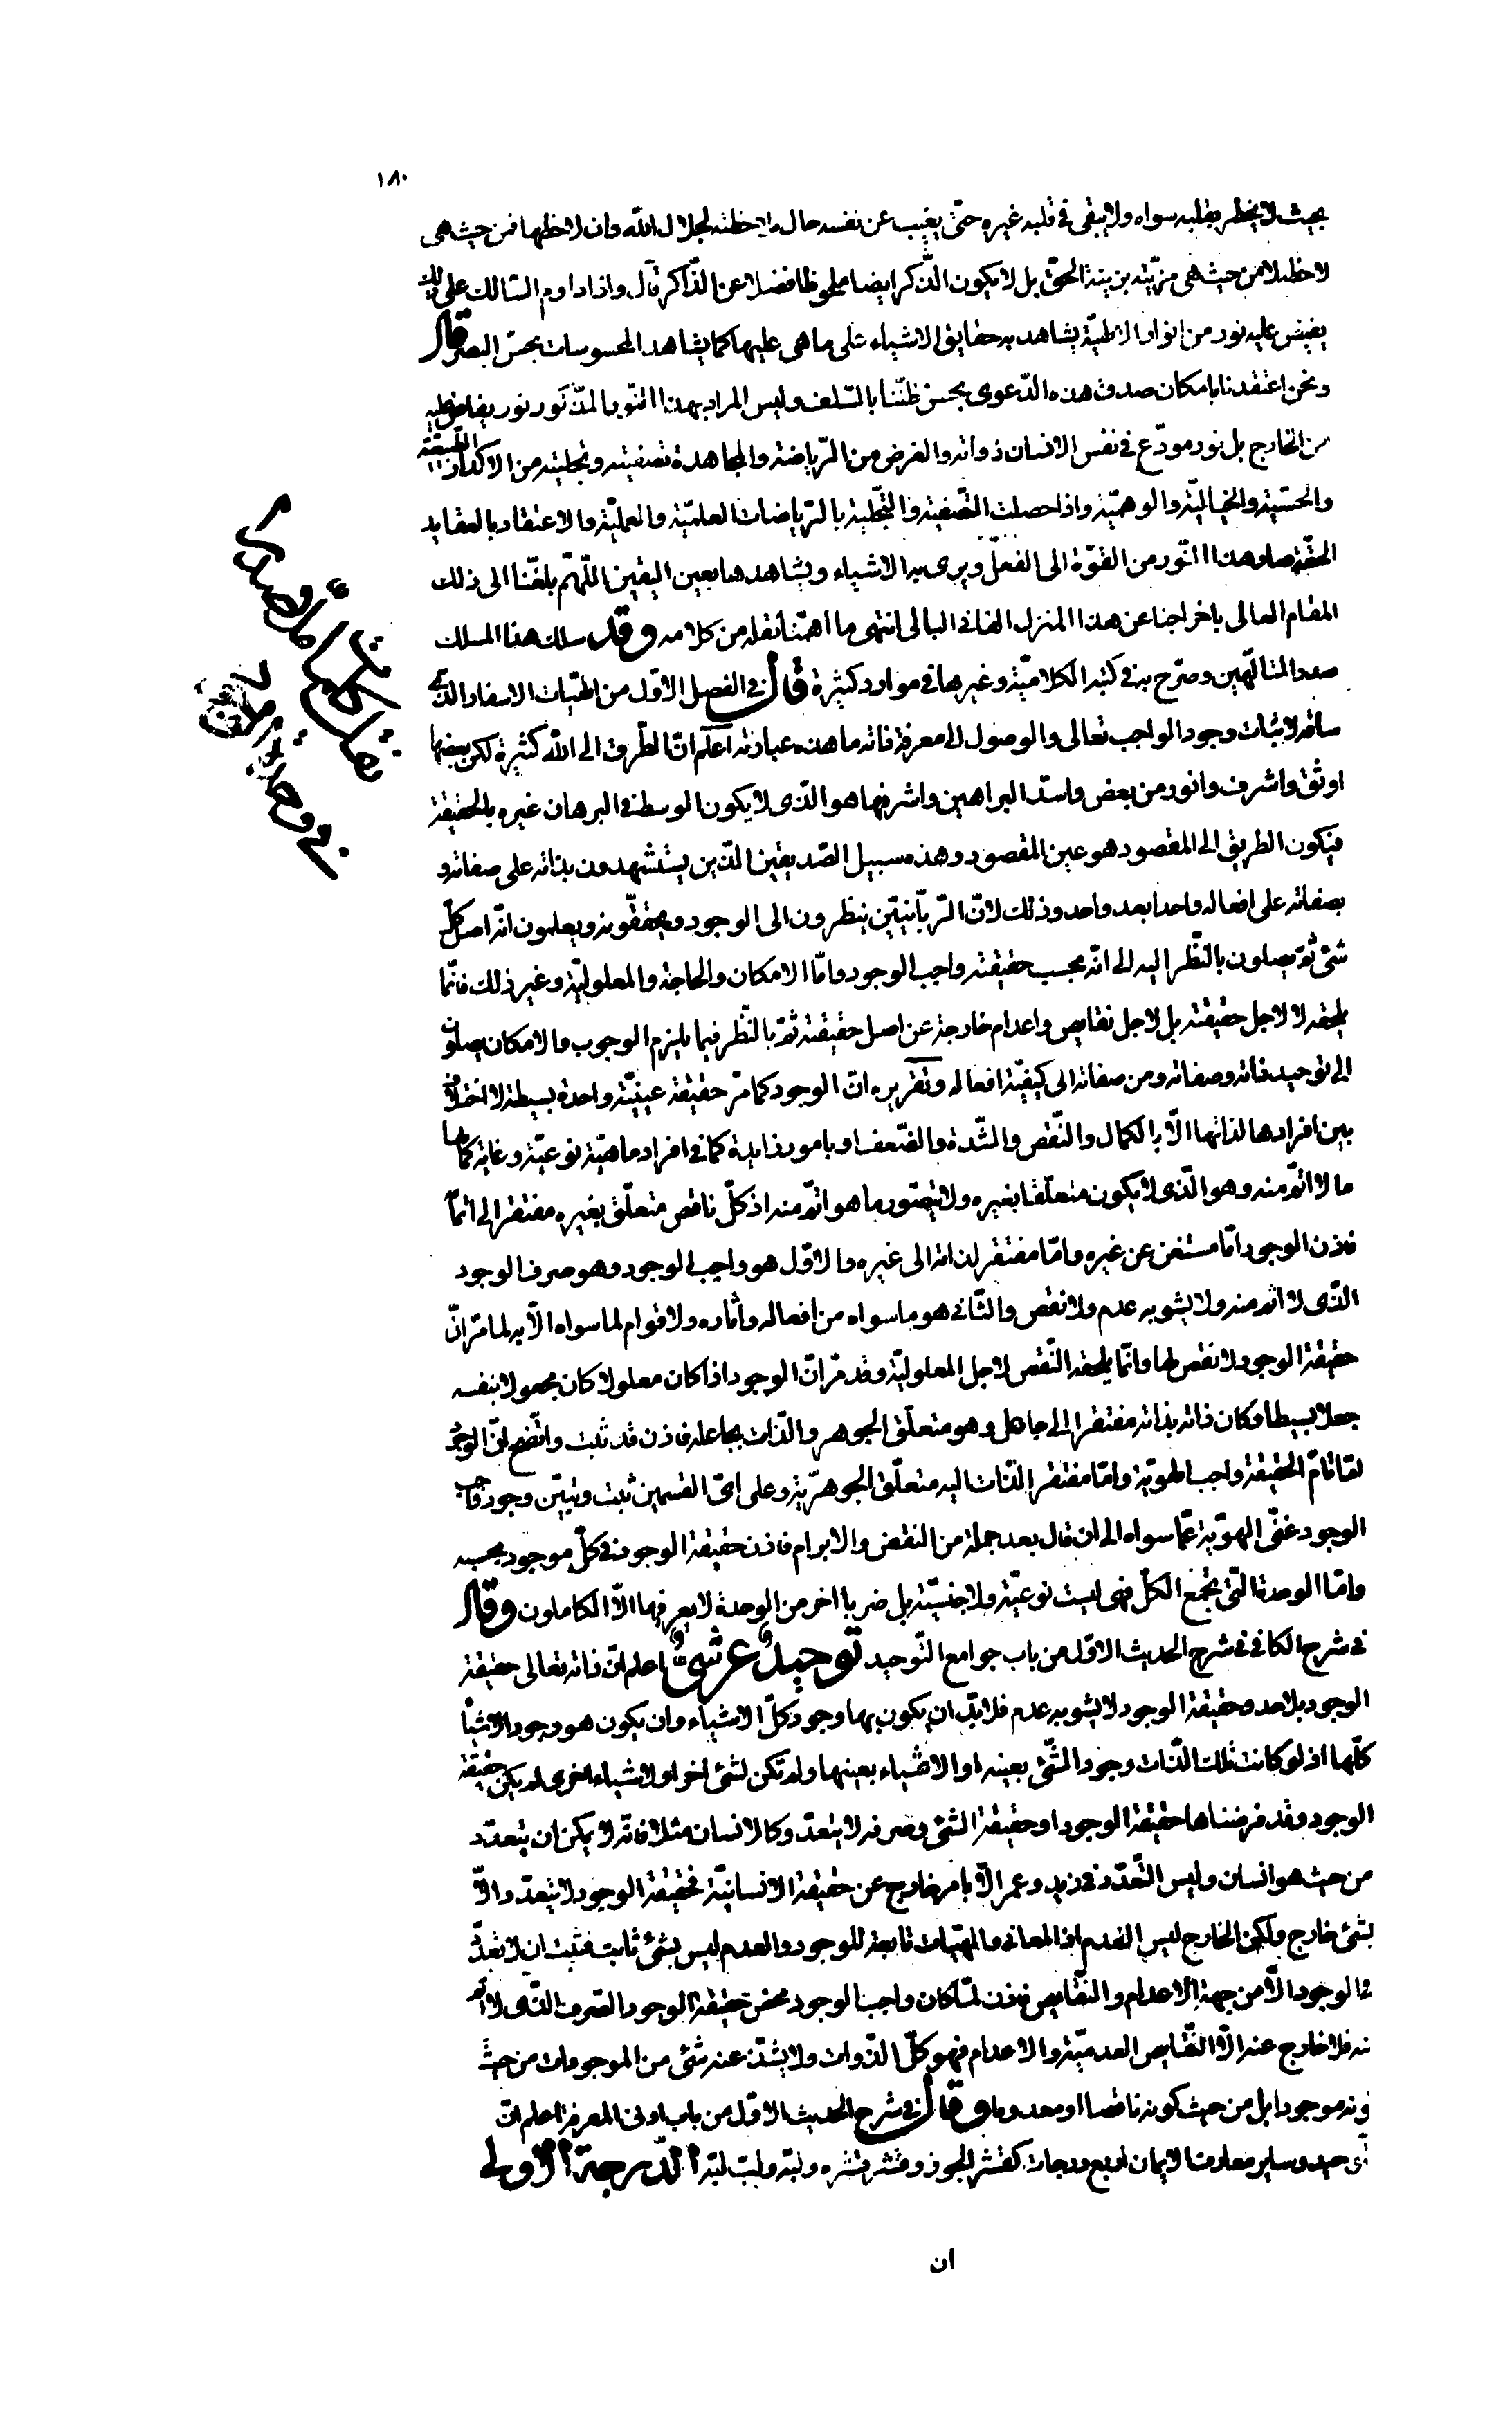 ١٨٠
بحيث لا يخطر بقلبه سواه ولا يبقى في قلبه غيره حتّى يغيب عن نفسه حال ملاحظته لجلال الله وان لاحظها فمن حيث هى
لاحظه لا من حيث هى مزيّنة بزينة الحقّ بل لا يكون الذّكر ايضا ملحوظا فضلا عن الذّاكر قال واذا داوم السّالك على ذلك
يفيض عليه نور من انوار الالهيّة يشاهد به حقايق الاشياء على ما هى عليها كما يشاهد المحسوسات بحسّ البصر قال
ونحن اعتقدنا بامكان صدق هذه الدّعوى بحسن ظنّنا بالسّلف وليس المراد بهذا النّور المذكور نور يفاض عليه
من الخارج بل نور مودّع في نفس الانسان ذواته والغرض من الرّياضة والمجاهدة تصفيته وتجليته من الاكدار الطّبيعيّة
والحسّية والخياليّة والوهميّة واذا حصلت التّصفية والتّجلية بالرّياضات العلميّة والعمليّة والاعتقاد بالعقايد
الحقّة صار هذا النّور من القوّة الى الفعل ويرى به الاشياء ويشاهدها بعين اليقين اللّهمّ بلّغنا الى ذلك
المقام العالى باخراجنا عن هذا المنزل الفانى البالى انتهى ما اهمّنا نقله من كلامه وقد سلك هذا المسلك
صدر المتالّهين وصرّح به في كتبه الكلاميّة وغيرها في موارد كثيرة قال في الفصل الاوّل من الهيّات الاسفار الذّى
ساقه لاثبات وجود الواجب تعالى والوصول الى معرفة ذاته ما هذه عبارته اعلم انّ الطّرق الى الله كثيرة لكن بعضها
اوثق واشرف وانور من بعض واسدّ البراهين واشرفها هو الذّى لا يكون الوسط في البرهان غيره بالحقيقة
فيكون الطريق الى المقصود هو عين المقصود وهذه سبيل الصّديقين الذّين يستشهدون بذاته على صفاته و
بصفاته على افعاله واحدا بعد واحد وذلك لانّ الرّبّانيّين ينظرون الى الوجود ويحقّقونه ويعلمون انّه اصل كلّ
شئ ثمّ يصلون بالنّظر اليه الى انّه بحسب حقيقته واجب الوجود وامّا الامكان والحاجة والمعلوليّة وغير ذلك فانّما
يلحقه لا لاجل حقيقته بل لاجل نقايص واعدام خارجة عن اصل حقيقته ثمّ بالنّظر فيما يلزم الوجوب والامكان يصلون
الى توحيد ذاته وصفاته ومن صفاته الى كيفيّة افعاله وتقريره انّ الوجود كما مرّ حقيقة عينيّة واحدة بسيطة لا اختلاف
بين افرادها لذاتها الّا بالكمال والنّقص والشّدة والضّعف او بامور زايدة كما في افراد ماهيّة نوعيّة وغاية كمالها
ما لا اتمّ منه وهو الذّى لا يكون متعلّقا بغيره ولا يتصوّر ما هو اتمّ منه اذ كلّ ناقص متعلّق بغيره مفتقر الى
فاذن الوجود امّا مستغن عن غيره وامّا مفتقر لذاته الى غيره والاوّل هو واجب الوجود وهو صرف الوجود
الذّى لا اتمّ منه ولا يشوبه عدم ولا نقص والثّانى هو ما سواه من افعاله واثاره ولا قوام لما سواه الّا به لما مرّ انّ
حقيقة الوجود لا نقص لها وانّما يلحقه النّقص لاجل المعلوليّة وقد مرّ انّ الوجود اذا كان معلولا كان مجعولا بنفسه
جعلا بسيطا وكان ذاته بذاته مفتقرا الى جاعل وهو متعلّق الجوهر والذّات بجاعله فاذن قد ثبت واتّضح انّ الوجود
امّا تامّ الحقيقة واجب الهويّة وامّا مفتقر الذّات اليه متعلّق الجوهريّة وعلى اىّ القسمين ثبت وتبيّن وجود واجب
الوجود غنىّ الهويّة عمّا سواه الى ان قال بعد جملة من النقض والابرام فاذن حقيقة الوجود في كلّ موجود بحسبه
وامّا الوحدة التّى تجمع الكلّ فهى ليست نوعيّة ولا جنسيّة بل ضربا اخر من الوحدة لا يعرفها الّا الكاملون وقال
في شرح الكافي في شرح الحديث الاوّل من باب جوامع التّوحيد توحيدٌ عرشىٌّ اعلم انّ ذاته تعالى حقيقة
الوجود بلا حد وحقيقة الوجود لا يشوبه عدم فلا بدّ ان يكون بها وجود كلّ الاشياء وان يكون هو وجود الاشياء
كلّها اذ لو كانت تلك الذّات وجود الشّئ بعينه او الاشياء بعينها ولم تكن لشئ اخر او لاشياء اخرى لم يكن حقيقة
الوجود وقد فرضناها حقيقة الوجود او حقيقة الشئ وصرفه لا يتعدّد كالانسان مثلا فانّه لا يمكن ان يتعدّد
من حيث هو انسان وليس التّعدّد في زيد وعمر الّا بامر خارج عن حقيقة الانسانيّة فحقيقة الوجود لا يتعدّد الّا
بشئ خارج ولكن الخارج ليس العدم اذ المعانى والمهيّات تابعة للوجود والعدم ليس بشئ ثابت فثبت ان لا تعدّد
في الوجود الّا من جهة الاعدام والنّقايص فاذن لمّا كان واجب الوجود محض حقيقة الوجود الصّرف الذّى لا اتمّ
منه فلا خارج عنه الّا النّقايص العدميّة والاعدام فهو كلّ الذّوات ولا يشذّ عنه شئ من الموجودات من حيث
كونه موجودا بل من حيث كونه ناقصا او معدوما وقال في شرح الحديث الاوّل من باب ادنى المعرفة اعلم انّ
توحيد وساير معارف الايمان اربع درجات كقشر الجوز وقشر قشره ولبّه ولبّ لبّه الدّرجة الاولى
ان
نقل كلمات ملّا صدرا
في وحدة